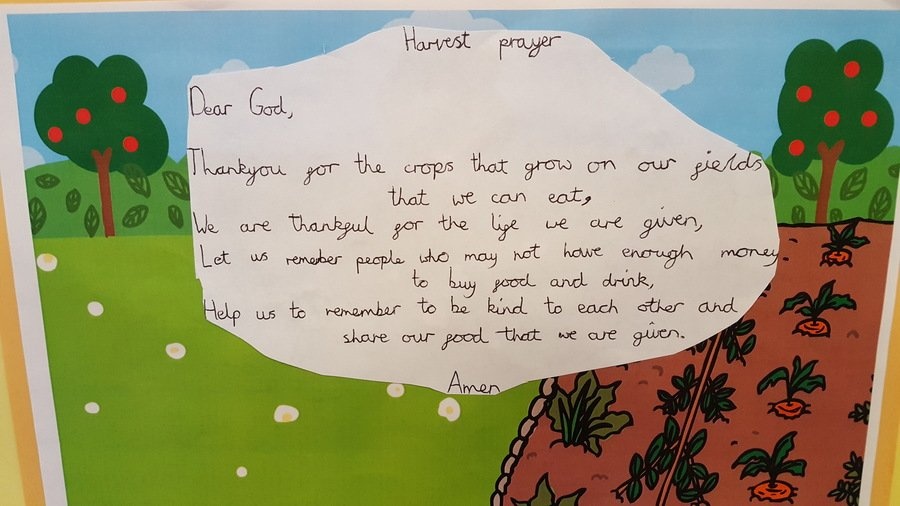 Harvest prayer
Dear God,
Thankyou for the crops that grow on our fields
that we can eat,
We are thankful for the life we are given,
Let us remeber people who may not have enough money
to buy food and drink,
Help us to remember to be kind to each other and
share our food that we are given.
Amen